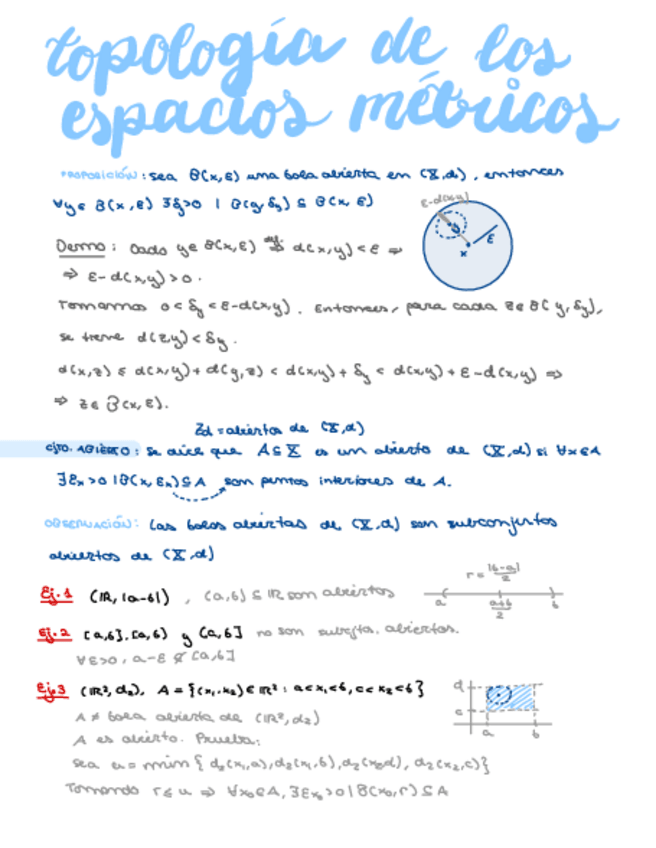 topología de los
espacios métricos
PROPOSICIÓN: sea B(x,ε) una bola abierta en (X,d), entonces
∀y∈ B(x,ε) ∃δy>0 | B(y,δy) ⊆ B(x,ε)
ε-d(x,y)
y
ε
x
Demo: Dado y∈ B(x,ε) ⇒ d(x,y)<ε ⇒
⇒ ε-d(x,y)>0.
Tomamos 0<δy<ε-d(x,y). Entonces, para cada z∈B(y,δy),
se tiene d(z,y)<δy.
d(x,z) ≤ d(x,y)+d(y,z) < d(x,y)+δy < d(x,y)+ε-d(x,y) ⇒
⇒ z∈ B(x,ε).
Zd = abiertos de (X,d)
CJTO. ABIERTO: se dice que A⊆X es un abierto de (X,d) si ∀x∈A
∃εx>0 | B(x,εx)⊆A son puntos interiores de A.
OBSERVACIÓN: Las bolas abiertas de (X,d) son subconjuntos
abiertos de (X,d)
Ej.1 (ℝ, |a-b|), (a,b) ⊆ ℝ son abiertos
r = |b-a|/2
a
a+b/2
b
Ej.2 [a,b], [a,b) y (a,b] no son subcjtos. abiertos.
∀ε>0, a-ε ∉ [a,b]
Ej.3 (ℝ², d₂), A = {(x₁,x₂)∈ℝ² : a<x₁<b, c<x₂<b}
d
c
a
b
A ≠ bola abierta de (ℝ²,d₂)
A es abierto. Prueba:
sea u = min { d₂(x₁,a), d₂(x₁,b), d₂(x₂,d), d₂(x₂,c)}
Tomando r≤u ⇒ ∀x₀∈A, ∃εx₀>0 | B(x₀,r) ⊆ A